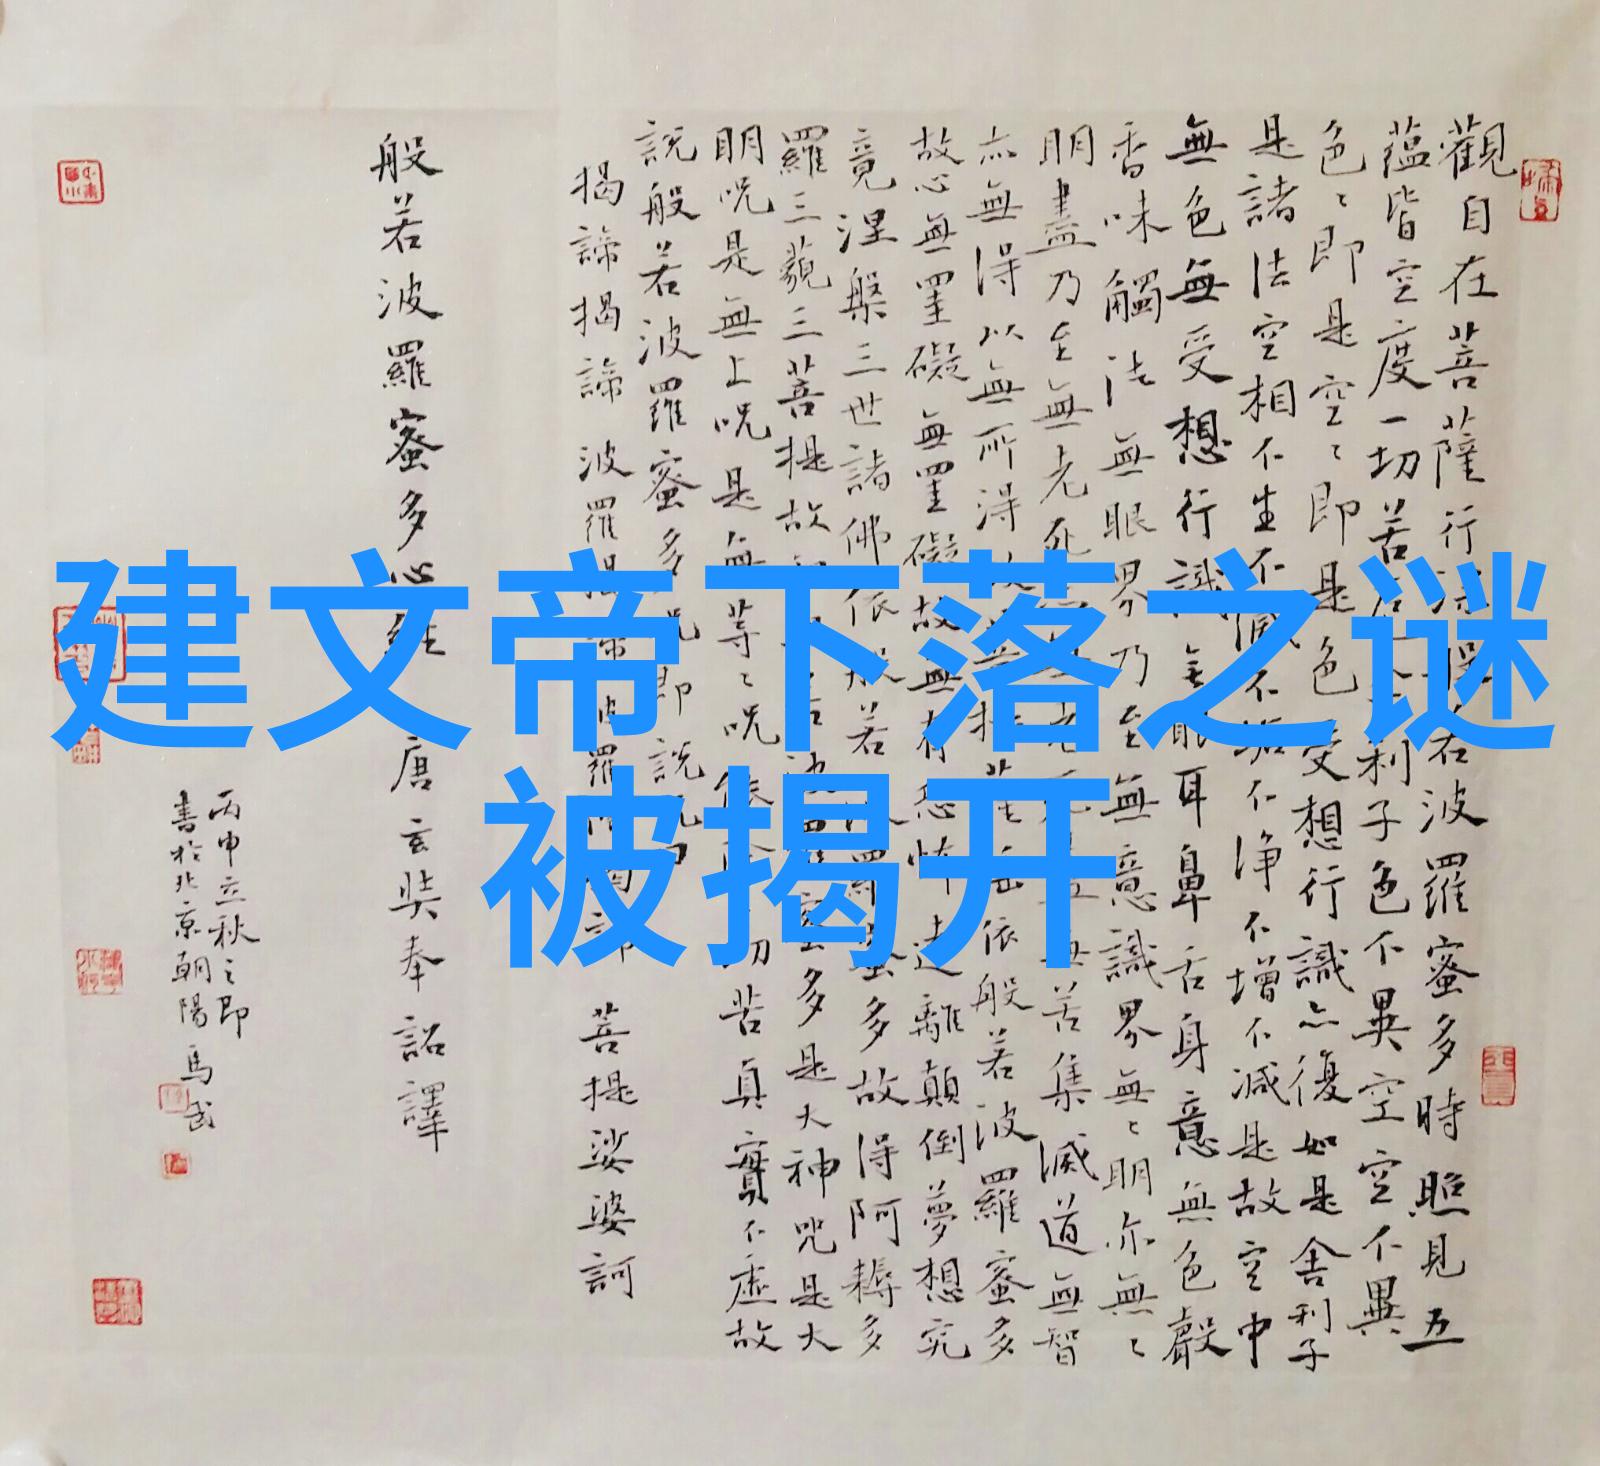 建文帝下落之谜
被揭开
觀自在菩薩行深若波羅蜜多時照見五
蘊皆空度一切苦利子色不異空空不異
色〻即是空〻即是色受想行識亦復如是舍利子
是諸法空相不生不滅不垢不淨不增不減是故空中
無色無受想行識無眼耳鼻舌身意無色聲
香味觸法無眼界乃至無意識界無〻明亦無〻
明盡乃至無老死無苦集滅道無智
亦無得以無所得依般若波羅蜜多
故心無罣礙無罣礙故無有恐怖遠離顛倒夢想究
竟涅槃三世諸佛依般若蜜多故得阿耨多
羅三藐三菩提故蜜多是大神咒是大
明呪是無上呪是無等〻呪切苦真實不虛故
説般若波羅蜜多呪即説呪曰
揭諦揭諦波羅揭諦波羅菩提娑婆訶
般若波羅蜜多心經唐玄奘奉詔譯
丙申立秋之即
書於北京朝陽馬武